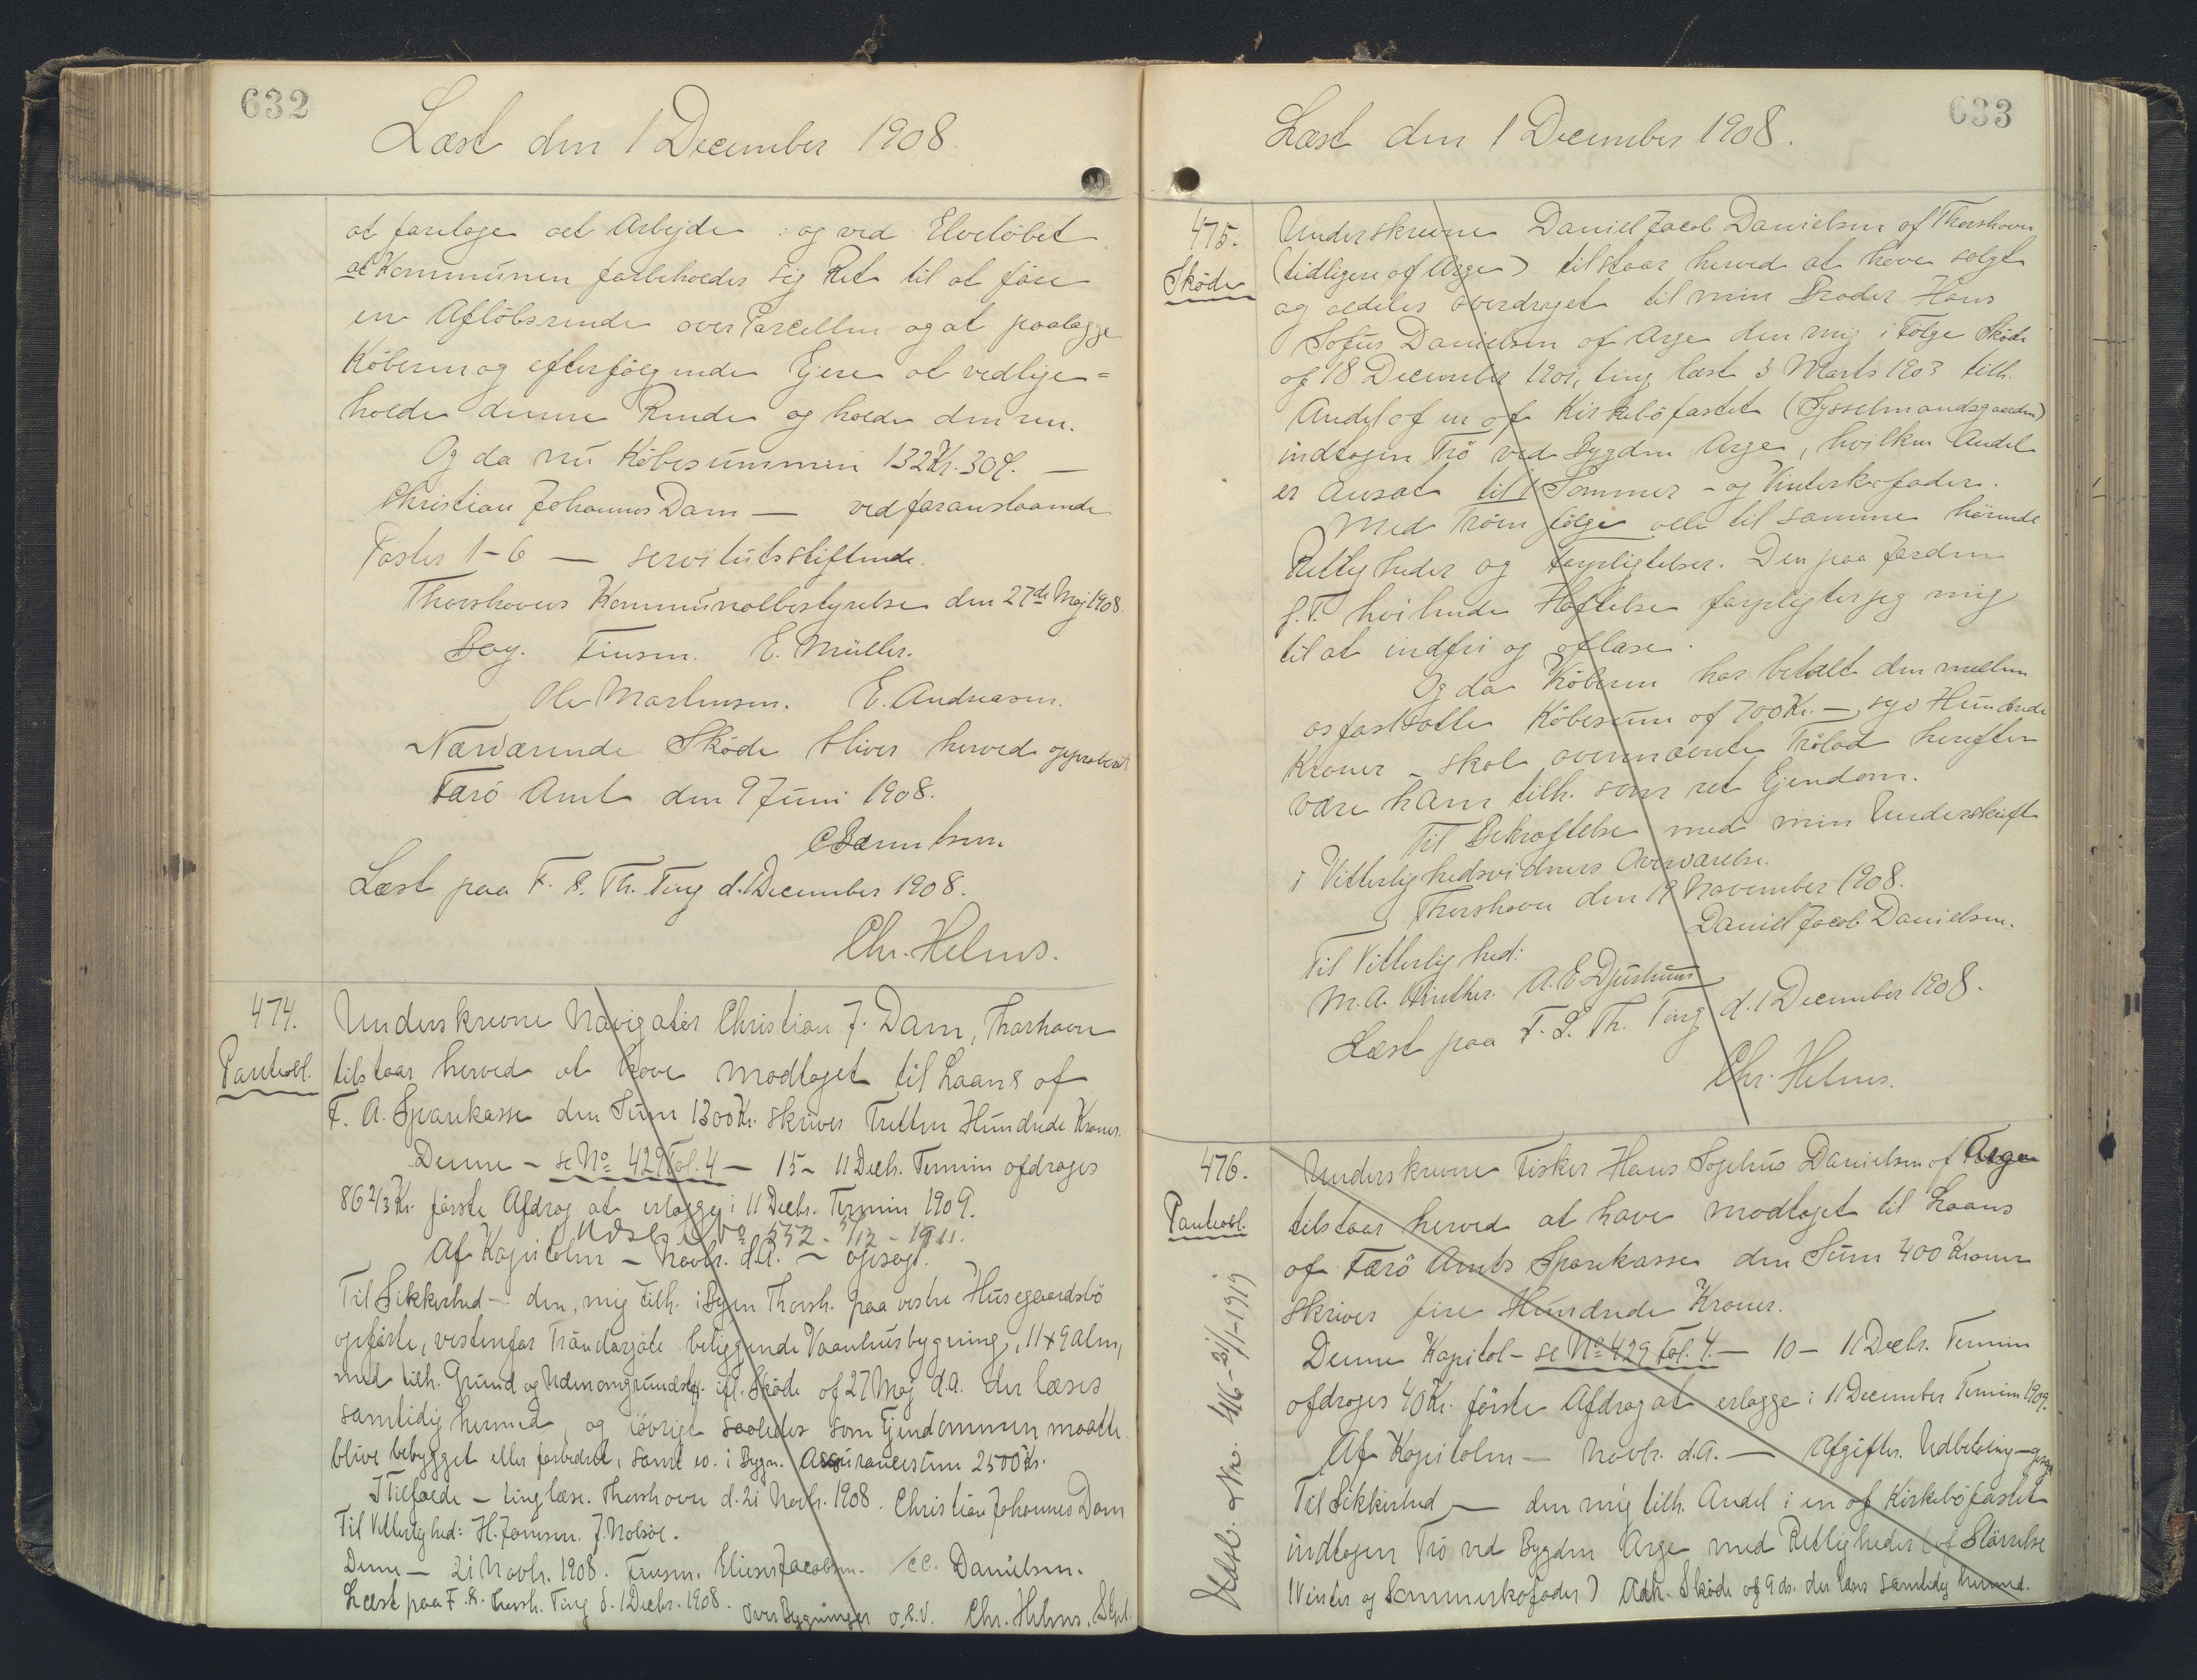 632
Læst den 1 December 1908.
at foretage det Arbejde og ved Elveløbet
at Kommunen forbeholder sig Ret til at føre
en Afløbsrende over Parcellen og at paalægge
Køberen og efterfølgende Ejere at vedlige=
holde denne Rende og holde den ren.
Og da nu Købesummen 132 Kr. 30 Ø. —
Christian Johannes Dam — ved foranstaaende
Poster 1-6 — servitutsstiftende.
Thorshavns Kommunalbestyrelse den 27de Maj 1908.
Finsen. E. Müller.
Ole Martensen. E. Andreasen.
Nærværende Skøde bliver herved approberet
Færø Amt den 9 Juni 1908.
C Bærentsen.
Læst paa F. S. Th. Ting d. 1 December 1908.
Chr. Helms.
474.
Panteobl.
Underskrevne Navigatør Christian J. Dam, Thorhavn
tilstaar herved at have modtaget til Laans af
F. A. Sparekasse den Sum 1300 Kr. skriver Tretten Hundrede Kroner.
Denne - se No 429 Fol. 4 - 15 - 11 Decbr. Termin afdrages
86 2/3 Kr. første Afdrag at erlægge i 11 Decbr. Termin 1909.
No 552 - 5/12 - 1911.
Af Kapitalen - Novbr. d.A. - opsagt.
Til Sikkerhed - den, mig tilh. i Byen Thorsh. paa vestre Husegaardsbø
opførte, vestenfor Tróndargøte beliggende Vaanhusbygning, 11 x 9 Alen,
med tilh. Grund og Udenomsgrundstk. ifl. Skøde af 27 Maj d.A. der læses
samtidig hermed, og iøvrigt saaledes som Ejendommen maatte
blive bebygget eller forbedret, samt Assurancesum 2500 Kr.
I Tilfælde - tinglæse. Thorshavn d. 21 Novbr. 1908. Christian Johannes Dam
Til Vitterlighed: H. Joensen. J. Nolsøe.
Denne - 21 Novbr. 1908. Finsen. Elieser Jacobsen. C.C. Danielsen.
Læst paa F. S. Thorsh. Ting d. 1 Decbr. 1908. over Bygninger o.s.v. Chr. Helms.
633
Læst den 1 December 1908.
475.
Skøde
Underskrevne Daniel Jacob Danielsen af Thorshavn
(tidligere af Arge) tilstaar herved at have solgt
og aldeles overdraget til min Broder Hans
Sofus Danielsen af Arge den mig i Følge Skøde
af 18 December 1901, ting læst 3 Marts 1903 tilh.
Andel af en af Kirkebøfæstet (Sysselmandsgaarden)
indtagen Trø ved Bygden Arge, hvilken Andel
er Ansat til 1 Sommer - og Vinterkofoder.
Med Trøen følge alle til samme hørende
Rettigheder og Forpligtelser. Den paa Jorden
f. T. hvilende Hæftelse forpligter jeg mig
til at indfri og aflæse.
Og da Køberen har betalt den mellem
os fastsatte Købesum af 700 Kr. — syv Hundrede
Kroner - skal ovennævnte Trølod herefter
være ham tilh. som ret Ejendom.
Til Bekræftelse med min Underskrift
i Vitterlighedsvidners Overværelse.
Thorshavn den 19 November 1908.
Daniel Jacob Danielsen.
Til Vitterlighed:
M. A. Winther. A. E. Djurhuus
Læst paa F. S. Th. Ting d. 1 December 1908.
Chr. Helms.
476.
Panteobl.
Underskrevne Fisker Hans Sophus Danielsen af Arge
tilstaar herved at have modtaget til Laans
af Færø Amts Sparekasse den Sum 400 Kroner
skriver fire Hundrede Kroner.
Denne Kapital - se No 429 Fol. 4. - 10 - 11 Decbr. Termin
afdrages 40 Kr. første Afdrag at erlægge i 11 December Termin 1909.
Af Kapitalen - Novbr. d.A. - Afgifter. Udbetaling -
Til Sikkerhed - den mig tilh. Andel i en af Kirkebøfæstet
indtagen Trø ved Bygden Arge med Rettigheder (af Størrelse
1 Vinter og Sommerkofoder) Adk. Skøde af 9 ds. der læses samtidig hermed.
Udsl. No. 416 - 21/1 - 1919